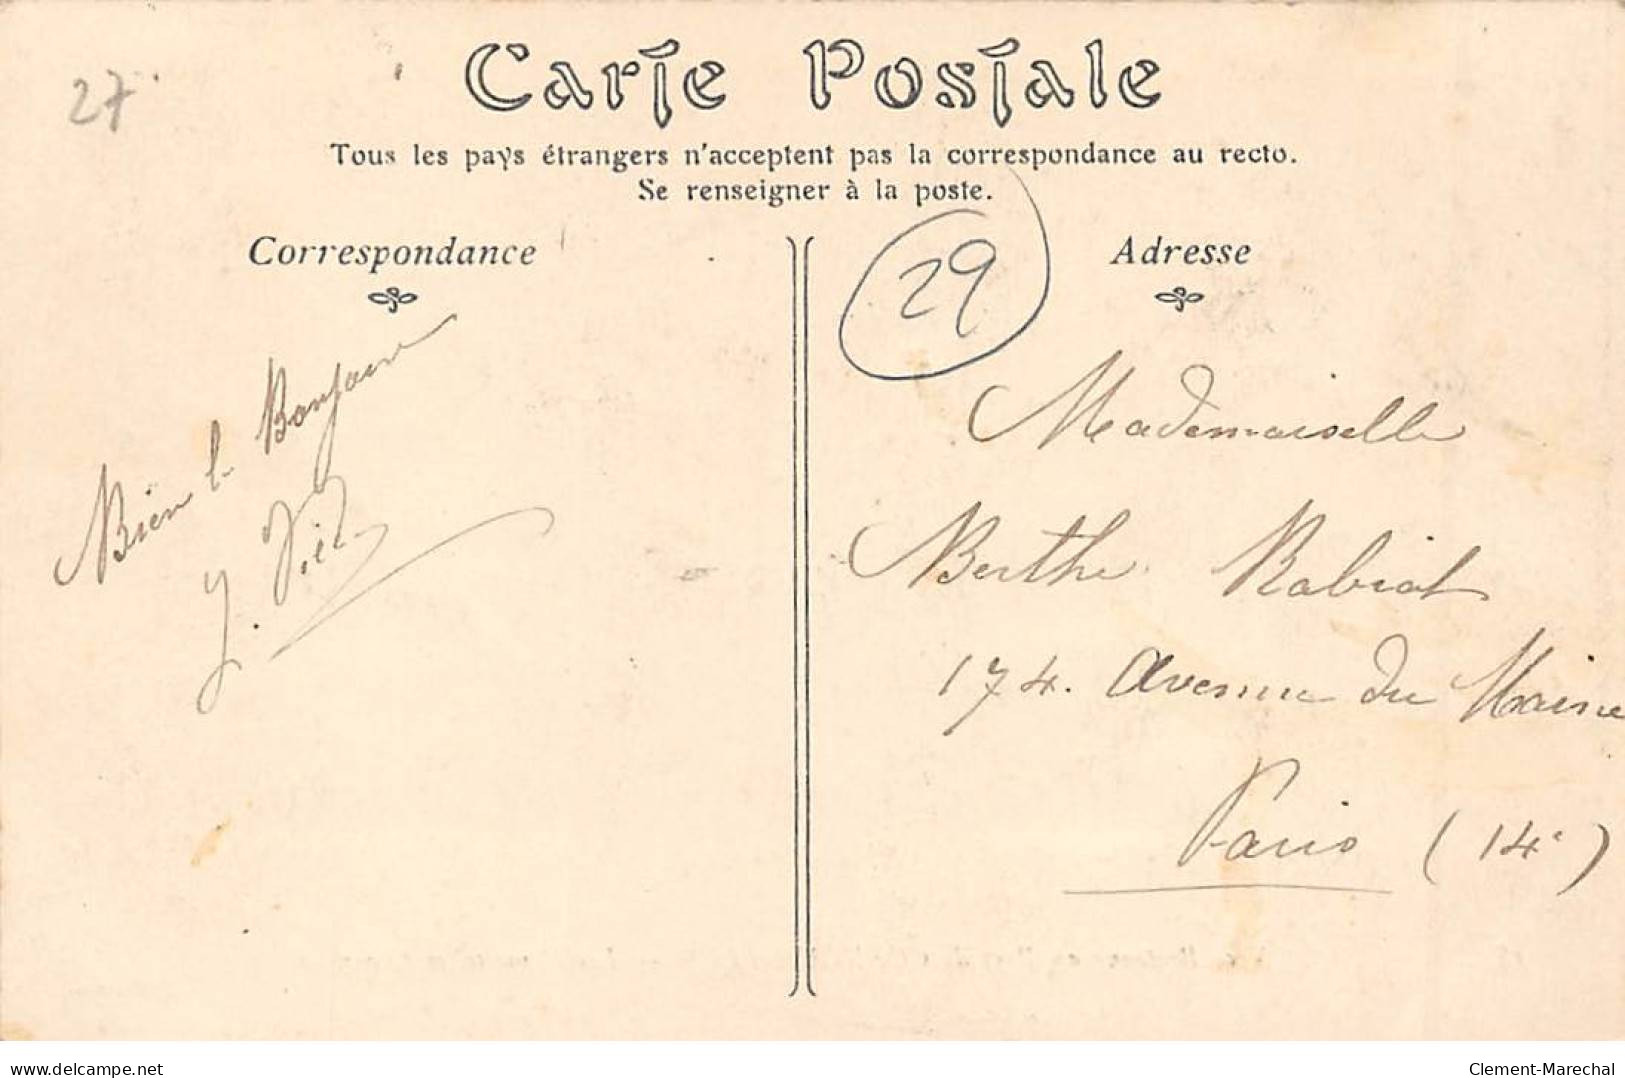 27
Carte Postale
Tous les pays étrangers n'acceptent pas la correspondance au recto.
Se renseigner à la poste.
Correspondance
Bien le Bonjour
J.
29
Adresse
Mademoiselle
Berthe Rabiat
174. Avenue du Maine
Paris (14e)
Bien le bonjour de www.delcampe.net